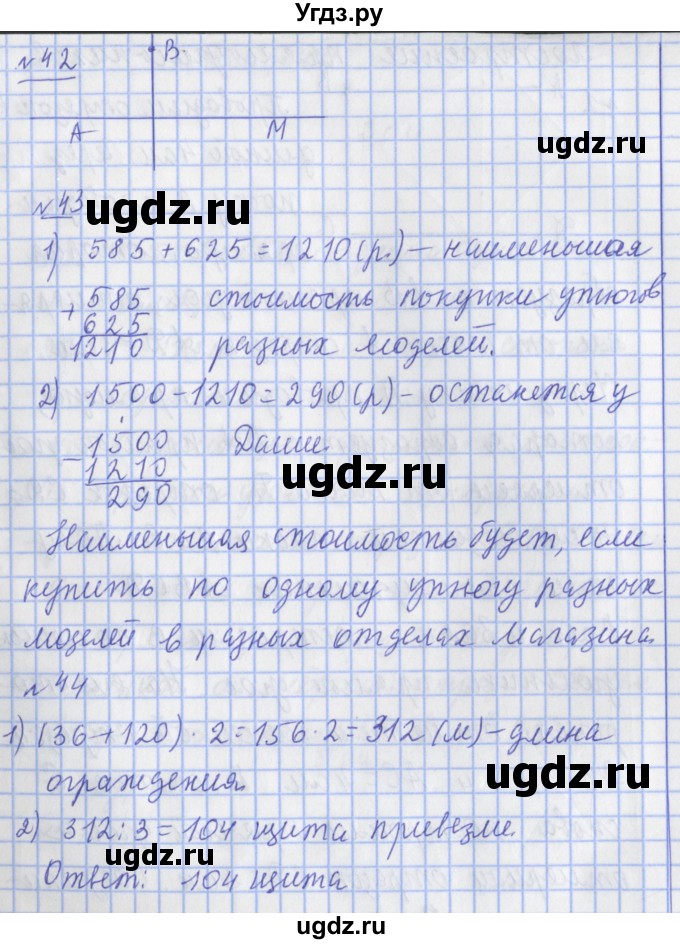 Угдз.ру
№42
В.
А М
№43
ugdz.ru
1) 585 + 625 = 1210 (р.) – наименьшая
+ 585 стоимость покупки утюгов
625
1210 разных моделей.
ugdz.ru
2) 1500 – 1210 = 290 (р) – останется у
– 1500 Даши.
1210
290
ugdz.ru
Наименьшая стоимость будет, если
купить по одному утюгу разных
моделей в разных отделах магазина.
ugdz.ru
№44
1) (36 + 120) · 2 = 156 · 2 = 312 (м) – длина
ограждения.
ugdz.ru
2) 312 : 3 = 104 щита привезли.
ugdz.ru
Ответ: 104 щита
ugdz.ru